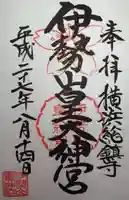 奉拝 横浜総鎮守
伊勢山皇大神宮
平成二十七年八月十四日